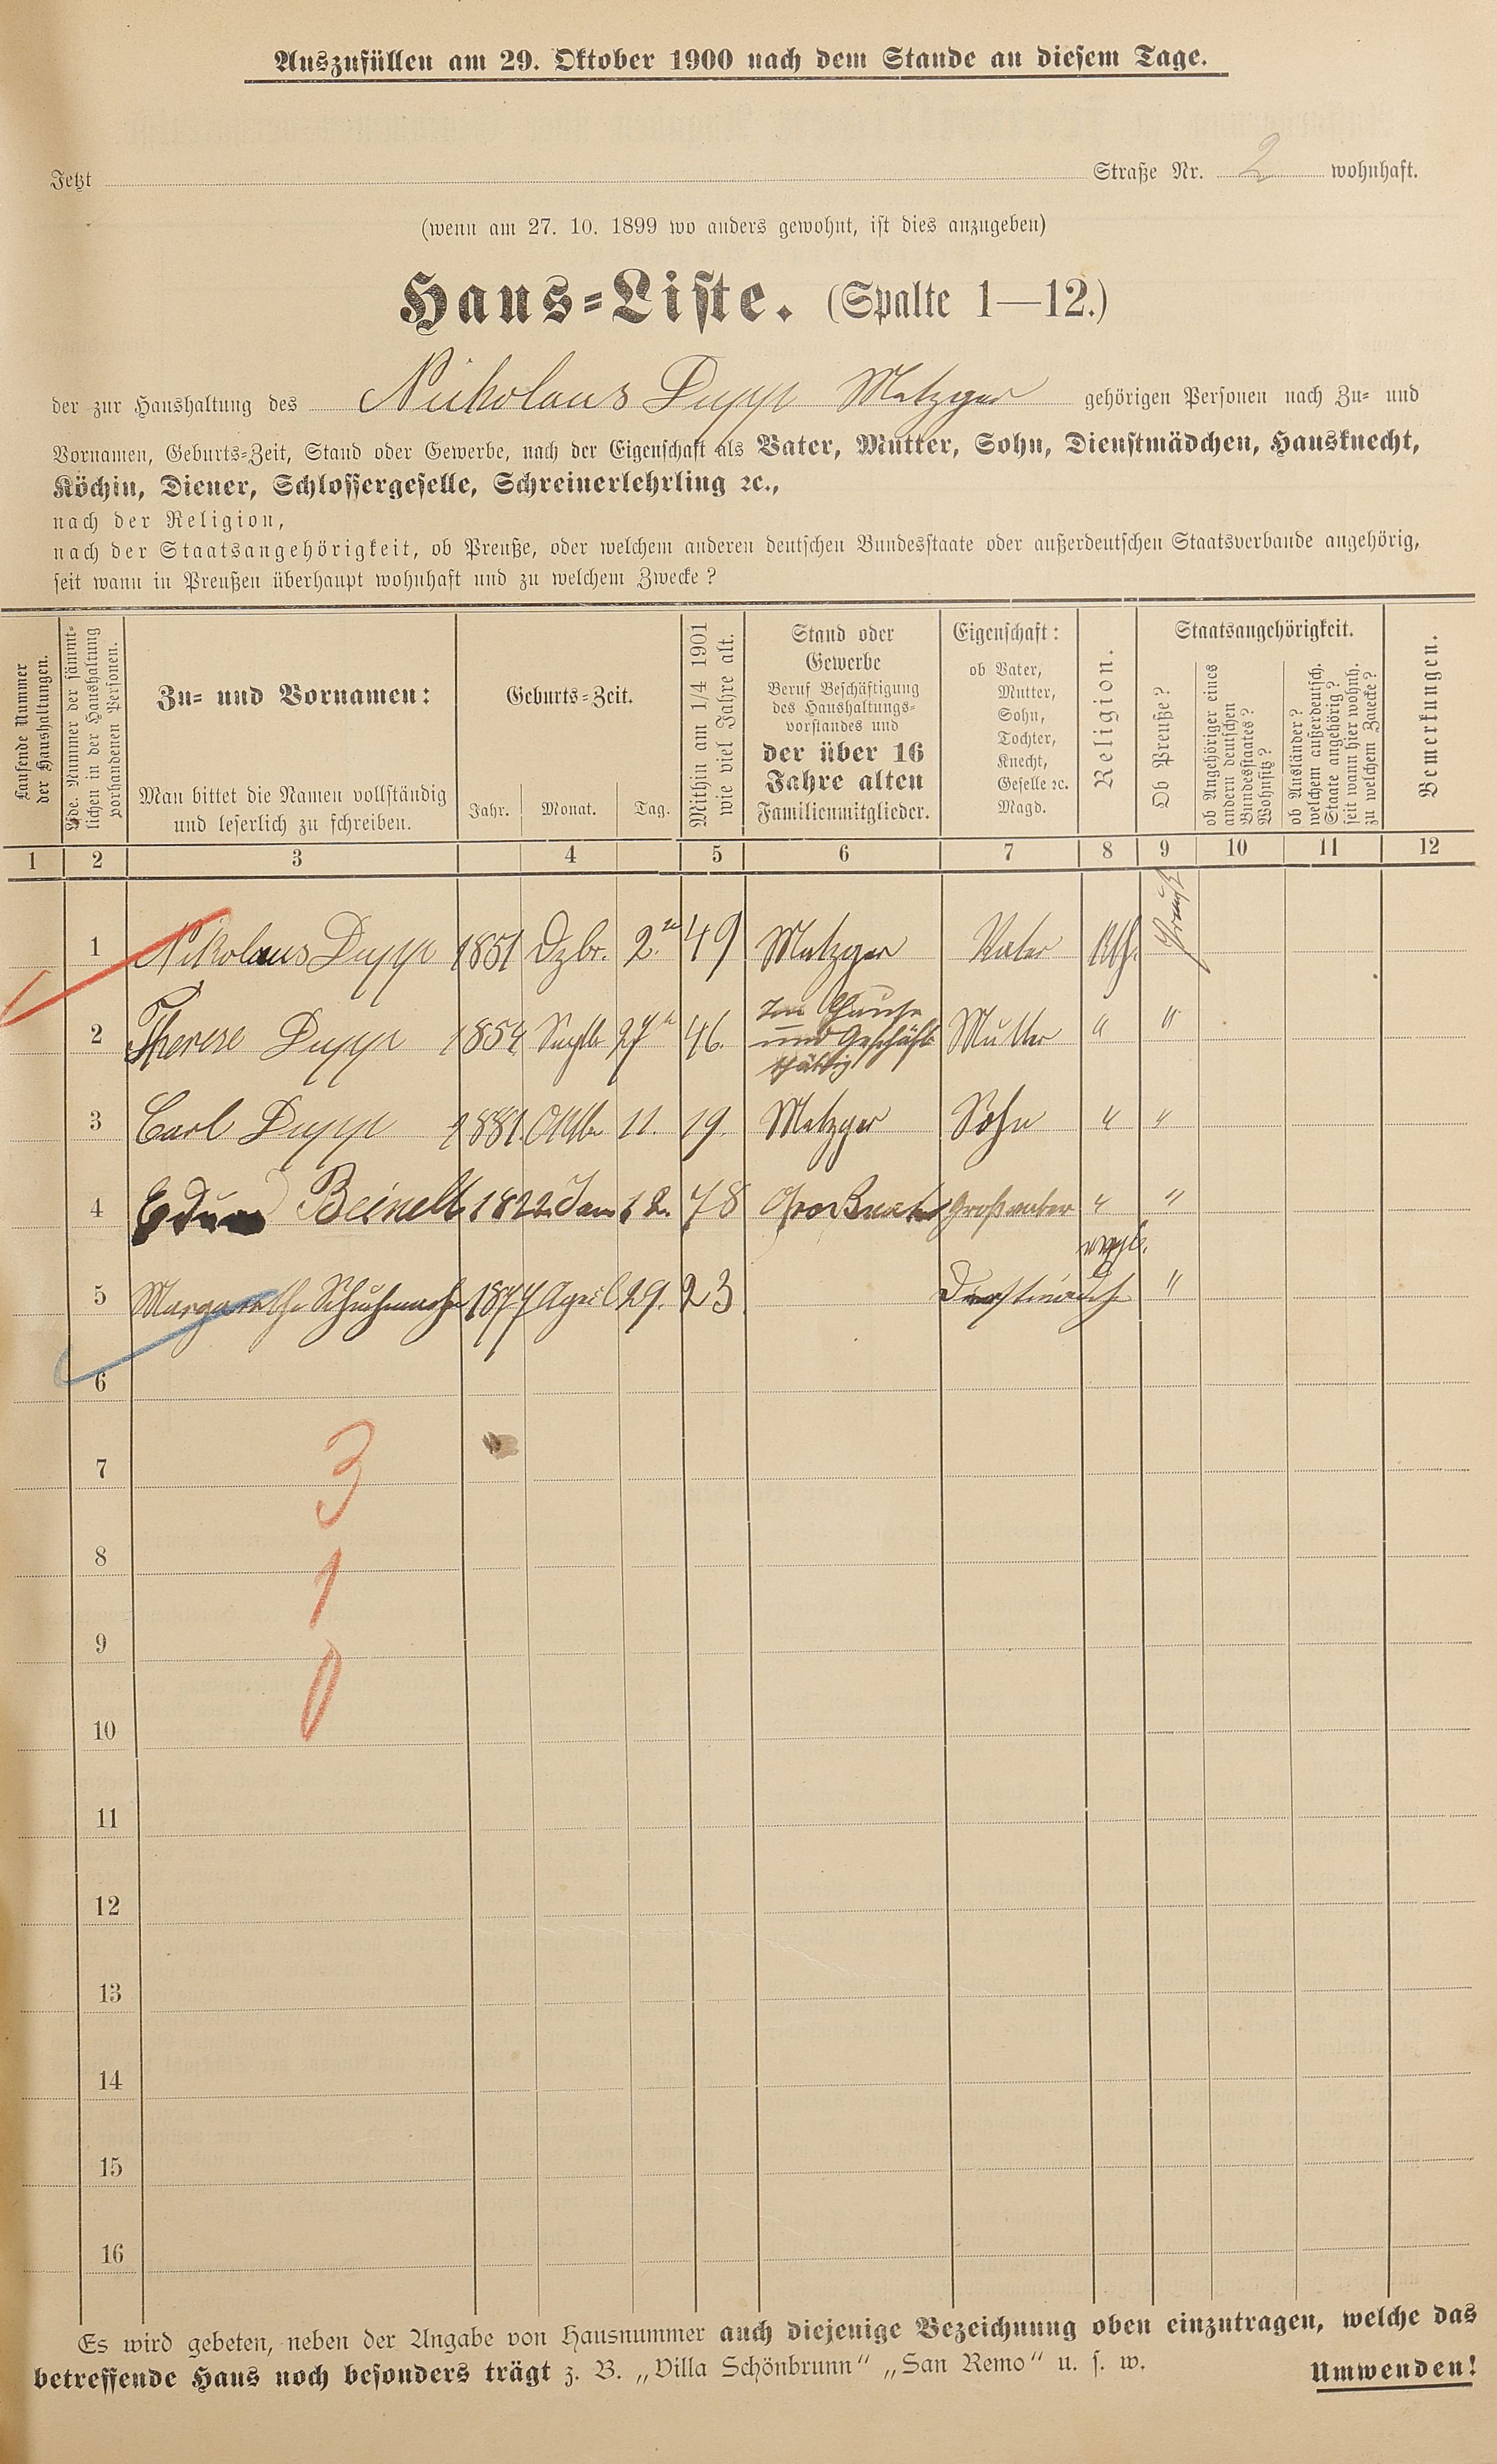 Auszufüllen am 29. Oktober 1900 nach dem Stande an diesem Tage.
Jetzt Straße Nr. 2 wohnhaft.
(wenn am 27. 10. 1899 wo anders gewohnt, ist dies anzugeben)
Haus=Liste. (Spalte 1—12.)
der zur Haushaltung des Nikolaus Dupp Metzger gehörigen Personen nach Zu= und
Vornamen, Geburts=Zeit, Stand oder Gewerbe, nach der Eigenschaft als Vater, Mutter, Sohn, Dienstmädchen, Hausknecht,
Köchin, Diener, Schlossergeselle, Schreinerlehrling ꝛc.,
nach der Religion,
nach der Staatsangehörigkeit, ob Preuße, oder welchem anderen deutschen Bundesstaate oder außerdeutschen Staatsverbande angehörig,
seit wann in Preußen überhaupt wohnhaft und zu welchem Zwecke?
Laufende Nummer
der Haushaltungen.
Lfde. Nummer der sämmt=
lichen in der Haushaltung
vorhandenen Personen.
Zu= und Vornamen:
Man bittet die Namen vollständig
und leserlich zu schreiben.
Geburts=Zeit.
Jahr. Monat. Tag.
Mithin am 1/4 1901
wie viel Jahre alt.
Stand oder
Gewerbe
Beruf Beschäftigung
des Haushaltungs=
vorstandes und
der über 16
Jahre alten
Familienmitglieder.
Eigenschaft:
ob Vater,
Mutter,
Sohn,
Tochter,
Knecht,
Geselle ꝛc.
Magd.
Religion.
Staatsangehörigkeit.
Ob Preuße?
ob Angehöriger eines
andern deutschen
Bundesstaates?
Wohnsitz?
ob Ausländer?
welchem außerdeutsch.
Staate angehörig?
seit wann hier wohnh.
zu welchem Zwecke?
Bemerkungen.
1 2 3 4 5 6 7 8 9 10 11 12
1 Nikolaus Dupp 1851 Dzbr. 2. 49 Metzger Vater Kth. Preuß
2 Therese Dupp 1854 Septb 27 46. Im Hause
und Geschäft
thätig Mutter " "
3 Carl Dupp 1881. Oktb 11. 19. Metzger Sohn " "
4 Beinell 1822. Jan 12. 78 Großvater Großvater " "
5 Margarethe 1877 April 29. 23 evgl. "
6
7
3
8
1
9
0
10
11
12
13
14
15
16
Es wird gebeten, neben der Angabe von Hausnummer auch diejenige Bezeichnung oben einzutragen, welche das
betreffende Haus noch besonders trägt z. B. „Villa Schönbrunn" „San Remo" u. s. w. Umwenden!